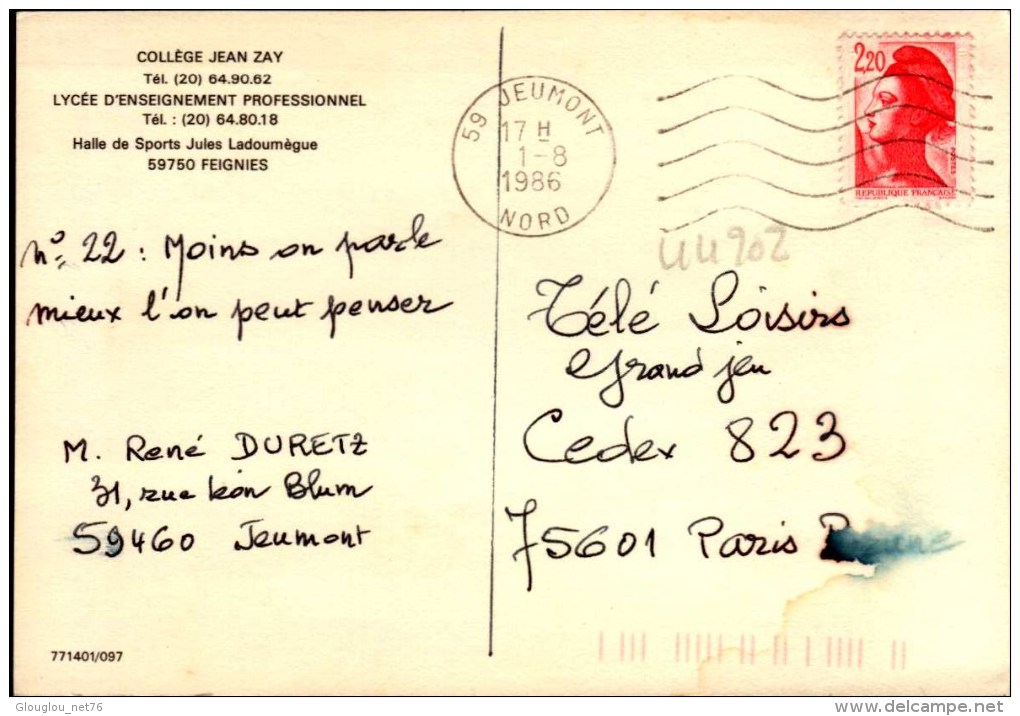 COLLÈGE JEAN ZAY
Tél. (20) 64.90.62
LYCÉE D'ENSEIGNEMENT PROFESSIONNEL
Tél. : (20) 64.80.18
Halle de Sports Jules Ladoumègue
59750 FEIGNIES
59 JEUMONT
17 H
1-8
1986
NORD
2,20
POSTES
REPUBLIQUE FRANÇAISE
44902
n° 22 : Moins on parle
mieux l'on peut penser
Télé Loisirs
Grand jeu
Cedex 823
75601 Paris
M. René DURETZ
31, rue Léon Blum
59460 Jeumont
771401/097
Glouglou_net76